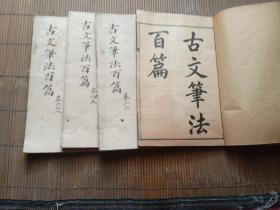 古文筆法
百篇
古文筆法百篇
卷二三
古文筆法百篇
卷四五
古文筆法百篇
卷六八